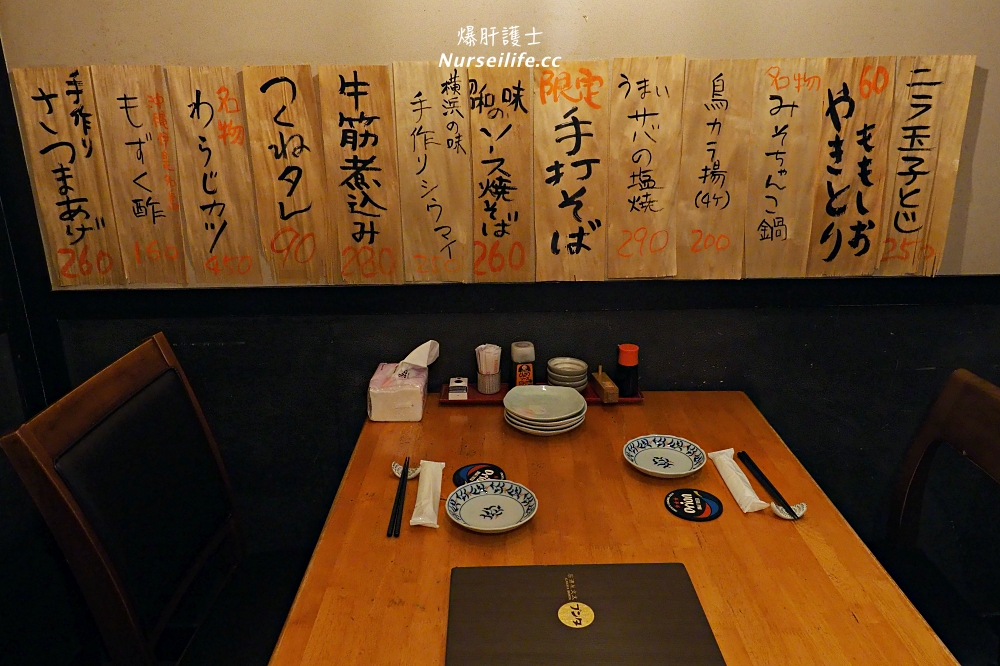 爆肝護士
Nurseilife.cc
ニラ玉子とじ
250
60
ももしお
やきとり
名物
みそちゃんこ鍋
鳥カラ揚(4ケ)
200
うまい
サバの塩焼
290
限定
手打そば
昭和の味
ソース焼そば
260
横浜の味
手作りシウマイ
牛筋煮込み
280
つくねタレ
90
名物
わらじカツ
450
もずく酢
160
手作り
さつまあげ
260
Orion
Orion